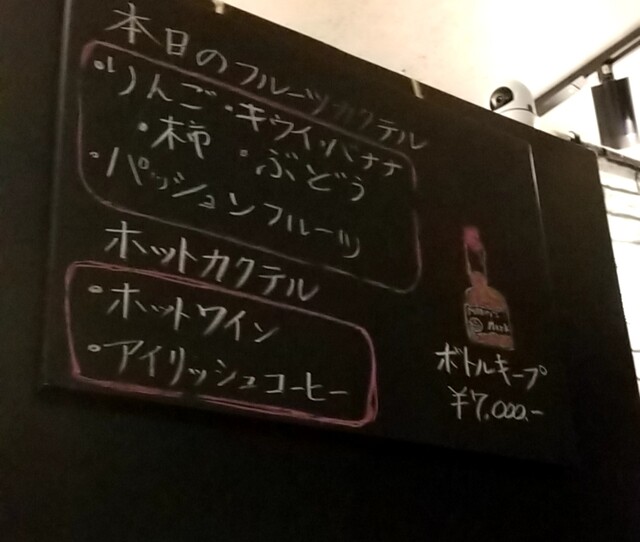 本日のフルーツカクテル
・りんご・キウイ・バナナ
・柿 ・ぶどう
・パッションフルーツ
ホットカクテル
・ホットワイン
・アイリッシュコーヒー
ボトルキープ
¥7,000.-